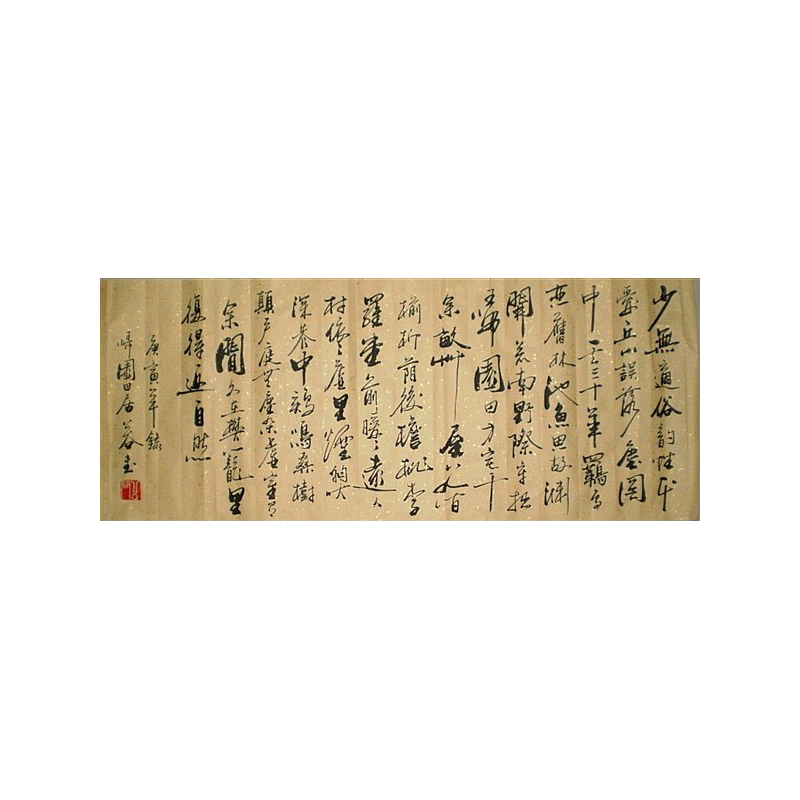 少無適俗韵性本
愛丘山誤落塵罔
中一去三十年羈鳥
恋舊林池魚思故淵
開荒南野際守拙
歸園田方宅十
余畝艸屋八九间
榆柳荫後檐桃李
羅堂前曖〻遠人
村依〻虛里煙狗吠
深巷中鷄鳴桑樹
顛户庭無塵雜虛室有
余閒久在樊籠里
復得返自然
庚寅年錄
歸園田居